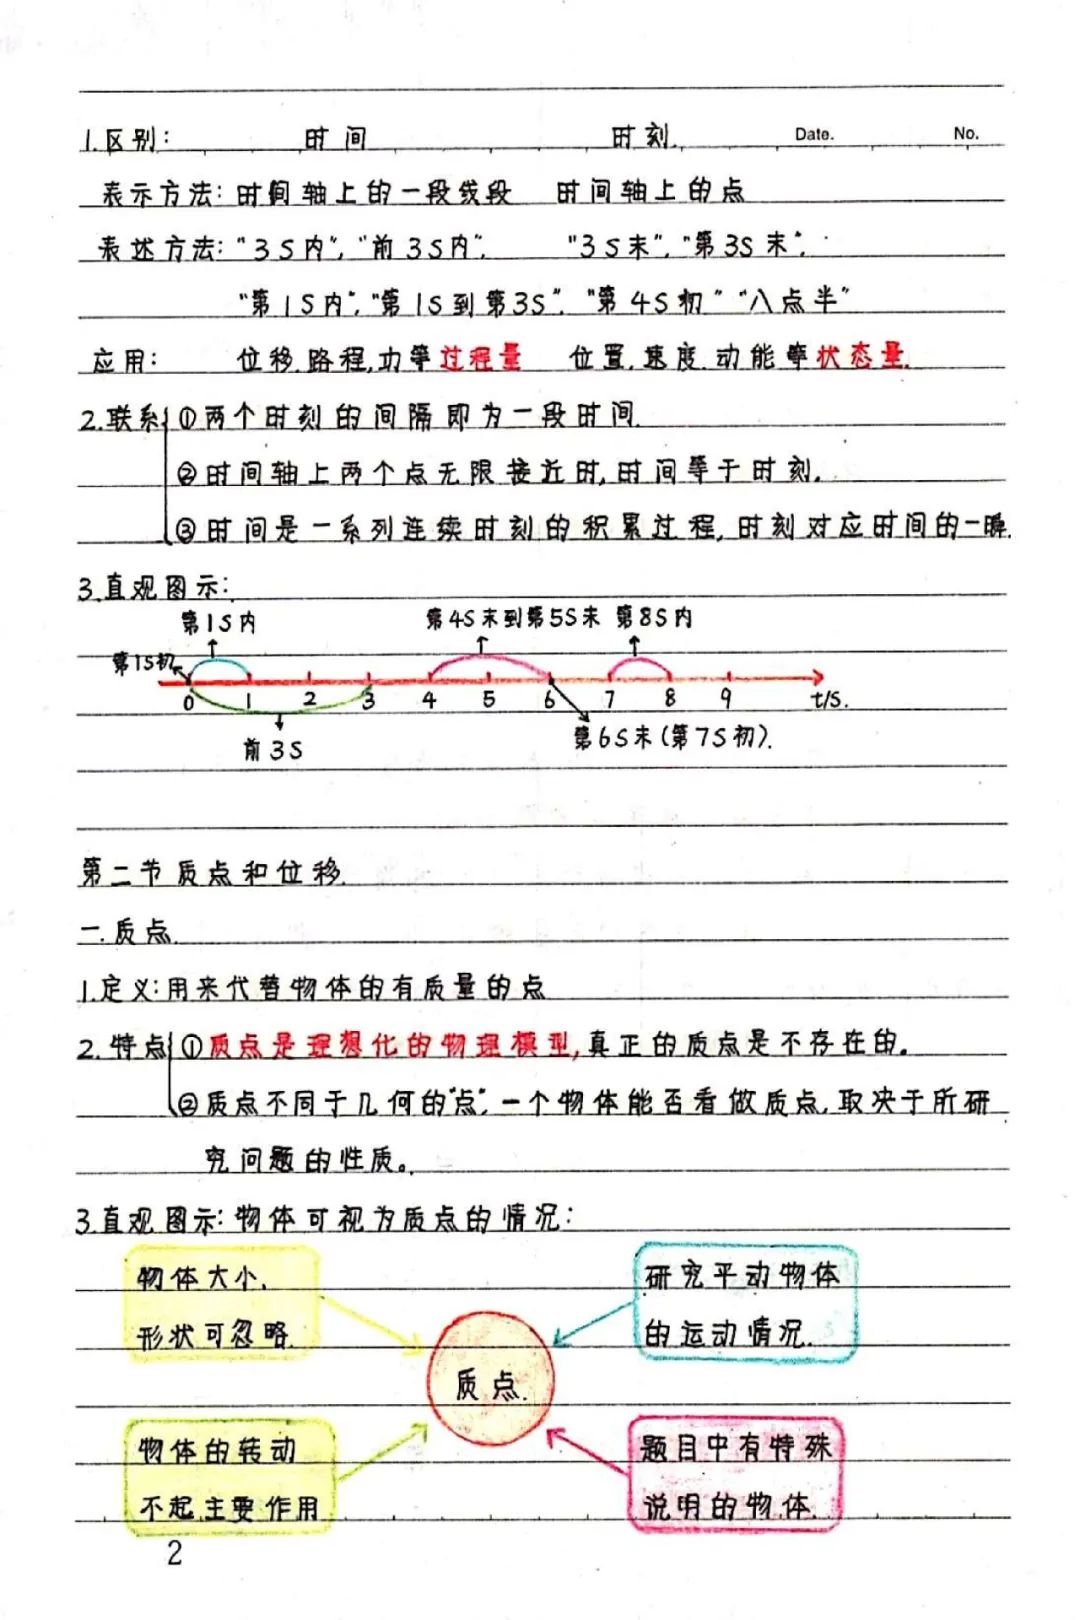 1.区别: 时间 时刻. Date. No.
表示方法: 时间轴上的一段线段 时间轴上的点
表述方法: "3S内", "前3S内". "3S末", "第3S末".
"第1S内", "第1S到第3S". "第4S初" "八点半"
应用: 位移.路程,功等过程量 位置.速度.动能等状态量.
2.联系 ①两个时刻的间隔即为一段时间.
②时间轴上两个点无限接近时,时间等于时刻.
③时间是一系列连续时刻的积累过程,时刻对应时间的一瞬.
3.直观图示:
第1S内 第4S末到第5S末 第8S内
第1S初
0 1 2 3 4 5 6 7 8 9 t/s.
前3S 第6S末(第7S初).
第二节 质点和位移.
一.质点.
1.定义:用来代替物体的有质量的点
2.特点 ①质点是理想化的物理模型,真正的质点是不存在的。
②质点不同于几何的"点",一个物体能否看做质点,取决于所研
究问题的性质。
3.直观图示:物体可视为质点的情况:
物体大小.
形状可忽略.
研究平动物体
的运动情况.
质点.
物体的转动
不起主要作用
题目中有特殊
说明的物体.
2